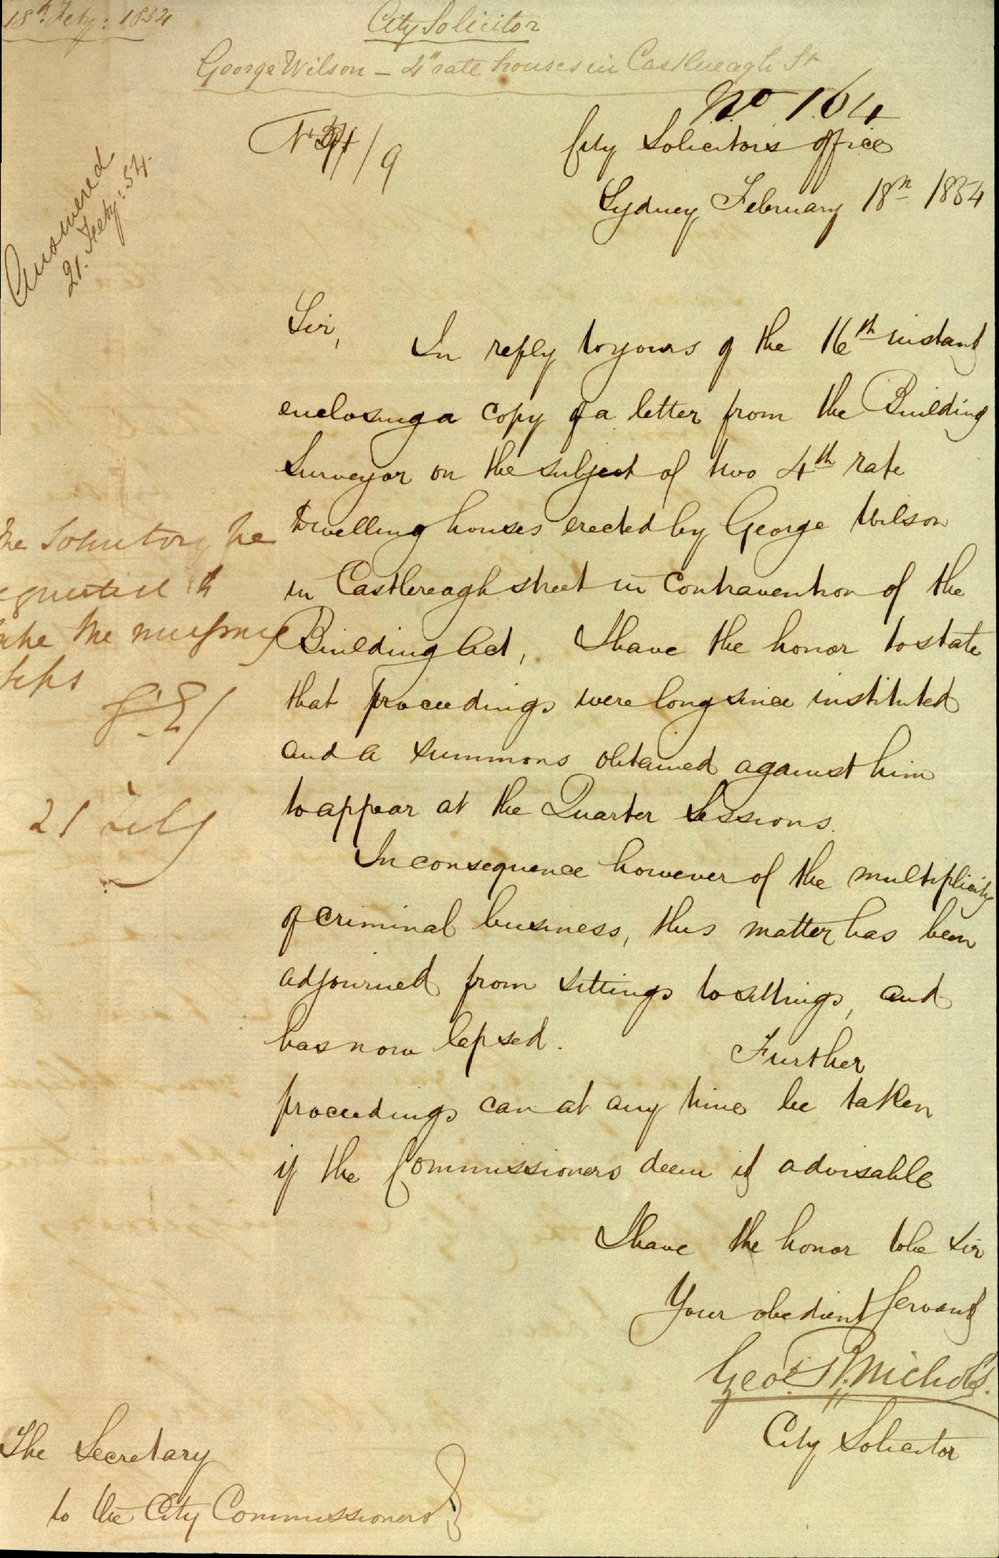 18th Feby: 1854
City Solicitor
George Wilson – 4th rate houses in Castlereagh St
No 164
City Solicitors office
Sydney February 18th 1854
Answered
21. Feby: 54.
Sir,
In reply to yours of the 16th instant
enclosing a copy of a letter from the Building
Surveyor on the subject of two 4th rate
Dwelling houses erected by George Wilson
in Castlereagh street in contravention of the
Building Act, I have the honor to state
that proceedings were long since instituted
and a summons obtained against him
to appear at the Quarter Sessions.
In consequence however of the multiplicity
of criminal business, this matter has been
adjourned from sittings to sittings, and
has now lapsed.
Further
proceedings can at any time be taken
if the Commissioners deem it advisable
I have the honor to be Sir
Your obedient Servant
Geo. R. Nichols.
City Solicitor
The Solicitor be
requested to
take the necessary
steps
21 Feby
The Secretary
to the City Commissioners